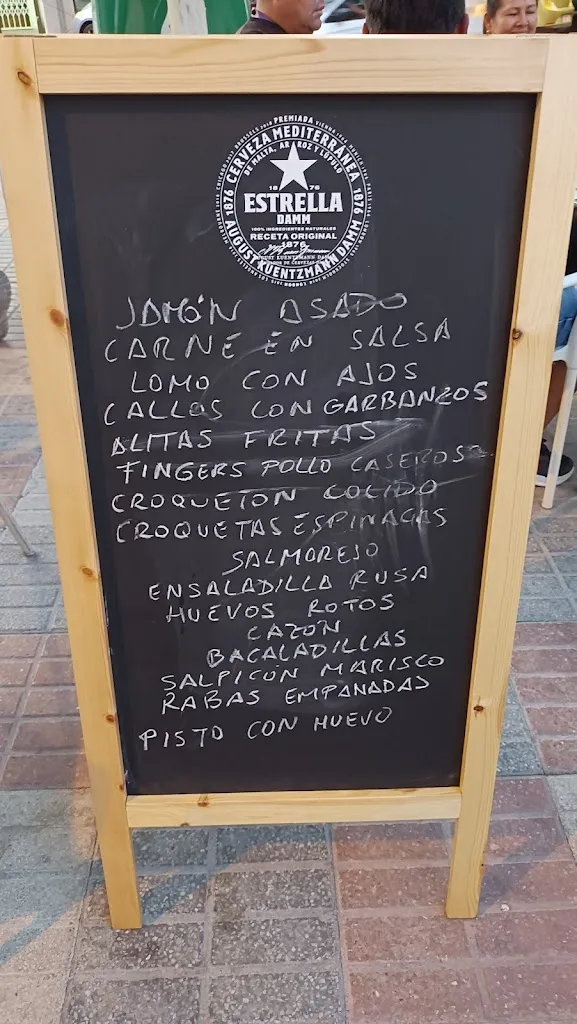 PREMIADA
CERVEZA MEDITERRÁNEA
DE MALTA, ARROZ Y LÚPULO
1876
1876
18 76
ESTRELLA
DAMM
100% INGREDIENTES NATURALES
RECETA ORIGINAL
1876
AUGUST KUENTZMANN DAMM
JAMÓN ASADO
CARNE EN SALSA
LOMO CON AJOS
CALLOS CON GARBANZOS
ALITAS FRITAS
FINGERS POLLO CASEROS
CROQUETON COCIDO
CROQUETAS ESPINACAS
SALMOREJO
ENSALADILLA RUSA
HUEVOS ROTOS
CAZÓN
BACALADILLAS
SALPICÓN MARISCO
RABAS EMPANADAS
PISTO CON HUEVO